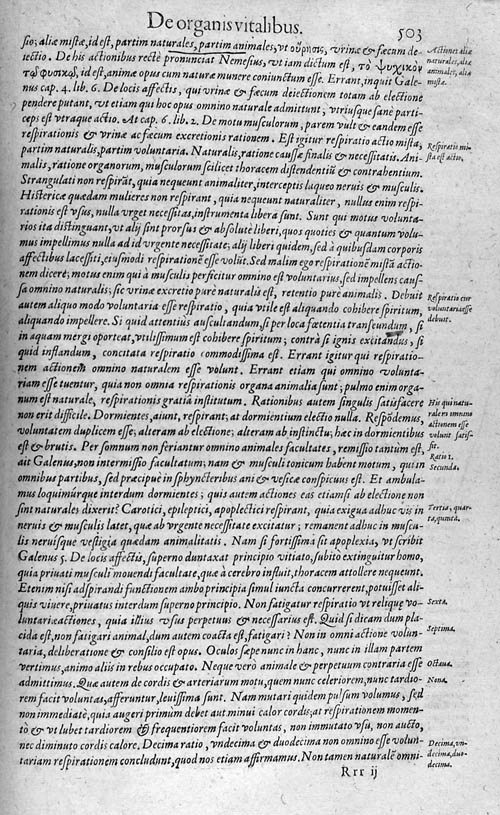 De organis vitalibus.
503
sio; aliæ mistæ, id est, partim naturales, partim animales, vt οὔρησις, vrinæ & fæcum de-
iectio. De his actionibus rectè pronunciat Nemesius, vt iam dictum est, τὸ ψυχικὸν
τῷ φυσικῷ, id est, animæ opus cum naturæ munere coniunctum esse. Errant, inquit Gale-
nus cap. 4. lib. 6. De locis affectis, qui vrinæ & fæcum deiectionem totam ab electione
pendere putant, vt etiam qui hoc opus omnino naturale admittunt, vtriusque sanè parti-
ceps est vtraque actio. At cap. 6. lib. 2. De motu musculorum, parem vult & eandem esse
respirationis & vrinæ ac fæcum excretionis rationem. Est igitur respiratio actio mista,
partim naturalis, partim voluntaria. Naturalis, ratione caussæ finalis & necessitatis. Ani-
malis, ratione organorum, musculorum scilicet thoracem distendentiū & contrahentium.
Strangulati non respirāt, quia nequeunt animaliter, interceptis laqueo neruis & musculis.
Histericæ quædam mulieres non respirant, quia nequeunt naturaliter, nullus enim respi-
rationis est vsus, nulla vrget necessitas, instrumenta libera sunt. Sunt qui motus volunta-
rios ita distinguant, vt alij sint prorsus & absolutè liberi, quos quoties & quantum volu-
mus impellimus nulla ad id vrgente necessitate; alij liberi quidem, sed à quibusdam corporis
affectibus lacessiti, eiusmodi respirationē esse volūt. Sed malim ego respirationē mistā actio-
nem dicere; motus enim qui à musculis perficitur omnino est voluntarius, sed impellens caus-
sa omnino naturalis; sic vrinæ excretio purè naturalis est, retentio purè animalis. Debuit
autem aliquo modo voluntaria esse respiratio, quia vtile est aliquando cohibere spiritum,
aliquando impellere. Si quid attentiùs auscultandum, si per loca fœtentia transeundum, si
in aquam mergi oporteat, vtilissimum est cohibere spiritum; contrà si ignis excitandus, si
quid inflandum, concitata respiratio commodissima est. Errant igitur qui respiratio-
nem actionem omnino naturalem esse volunt. Errant etiam qui omnino volunta-
riam esse tuentur, quia non omnia respirationis organa animalia sunt; pulmo enim orga-
num est naturale, respirationis gratiâ institutum. Rationibus autem singulis satisfacere
non erit difficile. Dormientes, aiunt, respirant; at dormientium electio nulla. Respōdemus,
voluntatem duplicem esse; alteram ab electione; alteram ab instinctu; hæc in dormientibus
est & brutis. Per somnum non feriantur omnino animales facultates, remissio tantùm est,
ait Galenus, non intermissio facultatum; nam & musculi tonicum habent motum, qui in
omnibus partibus, sed præcipuè in sphyncteribus ani & vesicæ conspicuus est. Et ambula-
mus loquimúrque interdum dormientes; quis autem actiones eas etiamsi ab electione non
sint naturales dixerit? Carotici, epileptici, apoplectici respirant, quia exigua adhuc vis in
neruis & musculis latet, quæ ab vrgente necessitate excitatur; remanent adhuc in muscu-
lis neruisque vestigia quædam animalitatis. Nam si fortissima sit apoplexia, vt scribit
Galenus 5. De locis affectis, superno duntaxat principio vitiato, subitò extinguitur homo,
quia priuati musculi mouendi facultate, quæ à cerebro influit, thoracem attollere nequeunt.
Etenim nisi ad spirandi functionem ambo principia simul iuncta concurrerent, potuisset ali-
quis viuere, priuatus interdum superno principio. Non fatigatur respiratio vt reliquę vo-
luntariæ actiones, quia illius vsus perpetuus & necessarius est. Quid si dicam dum pla-
cida est, non fatigari animal, dum autem coacta est, fatigari? Non in omni actione volun-
taria, deliberatione & consilio est opus. Oculos sæpe nunc in hanc, nunc in illam partem
vertimus, animo aliis in rebus occupato. Neque verò animale & perpetuum contraria esse
admittimus. Quæ autem de cordis & arteriarum motu, quem nunc celeriorem, nunc tardio-
rem facit voluntas, afferuntur, leuissima sunt. Nam mutari quidem pulsum volumus, sed
non immediatè, quia augeri primùm debet aut minui calor cordis; at respirationem momen-
tò & vt lubet tardiorem & frequentiorem facit voluntas, non immutato vsu, non aucto,
nec diminuto cordis calore. Decima ratio, vndecima & duodecima non omnino esse volun-
tariam respirationem concludunt, quod nos etiam affirmamus. Non tamen naturalē omni-
Rrr ij
Actiones aliæ
naturales, aliæ
animales, aliæ
mistæ.
Respiratio mi-
sta est actio.
Respiratio cur
voluntaria esse
debuit.
His qui natu-
ralem omnino
actionem esse
volunt satis-
fit.
Ratio 1.
Secunda.
Tertia, quar-
ta, quinta.
Sexta.
Septima.
Octaua.
Nona.
Decima, vn-
decima, duo-
decima.